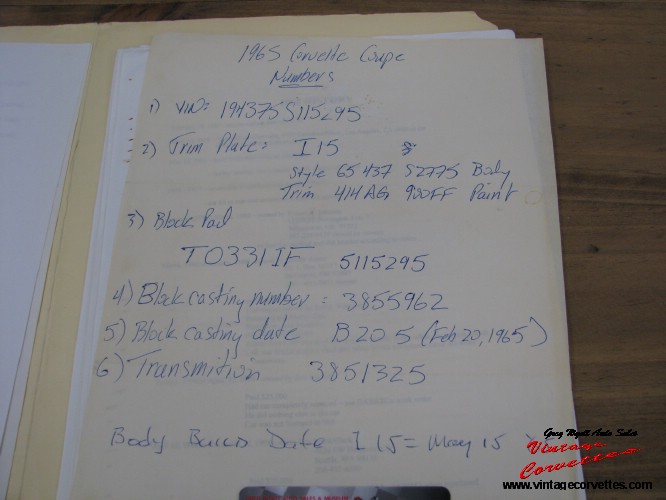 1965 Corvette Coupe
Numbers
1) VIN: 194375S115295
2) Trim Plate: I15
Style 65 437 S2775 Body
Trim 414AG 900FF Paint
3) Block Pad
T0331IF 5115295
4) Block casting number: 3855962
5) Block casting date B 20 5 (Feb 20, 1965)
6) Transmition 3851325
Body Date I 15 = May 15
Greg Wyatt Auto Sales
Vintage
Corvettes
www.vintagecorvettes.com